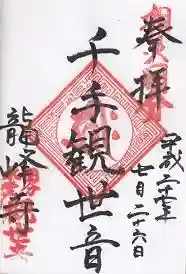 奉拝
平成二十七年
七月二十六日
千手観世音
龍峰寺